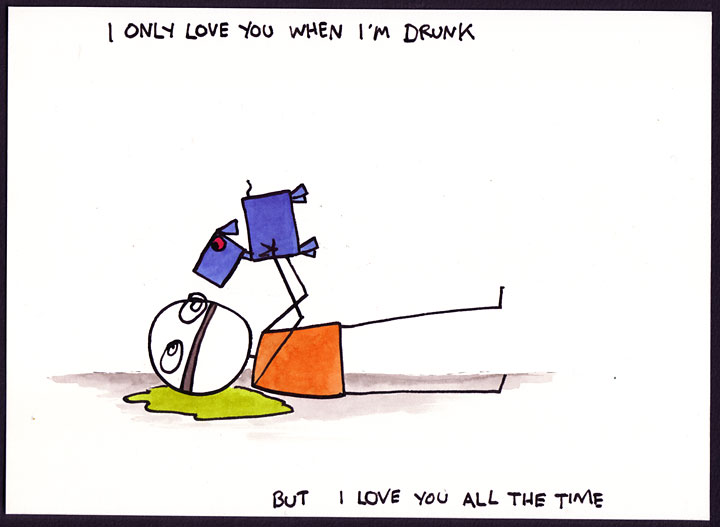 I ONLY LOVE YOU WHEN I'M DRUNK
BUT I LOVE YOU ALL THE TIME